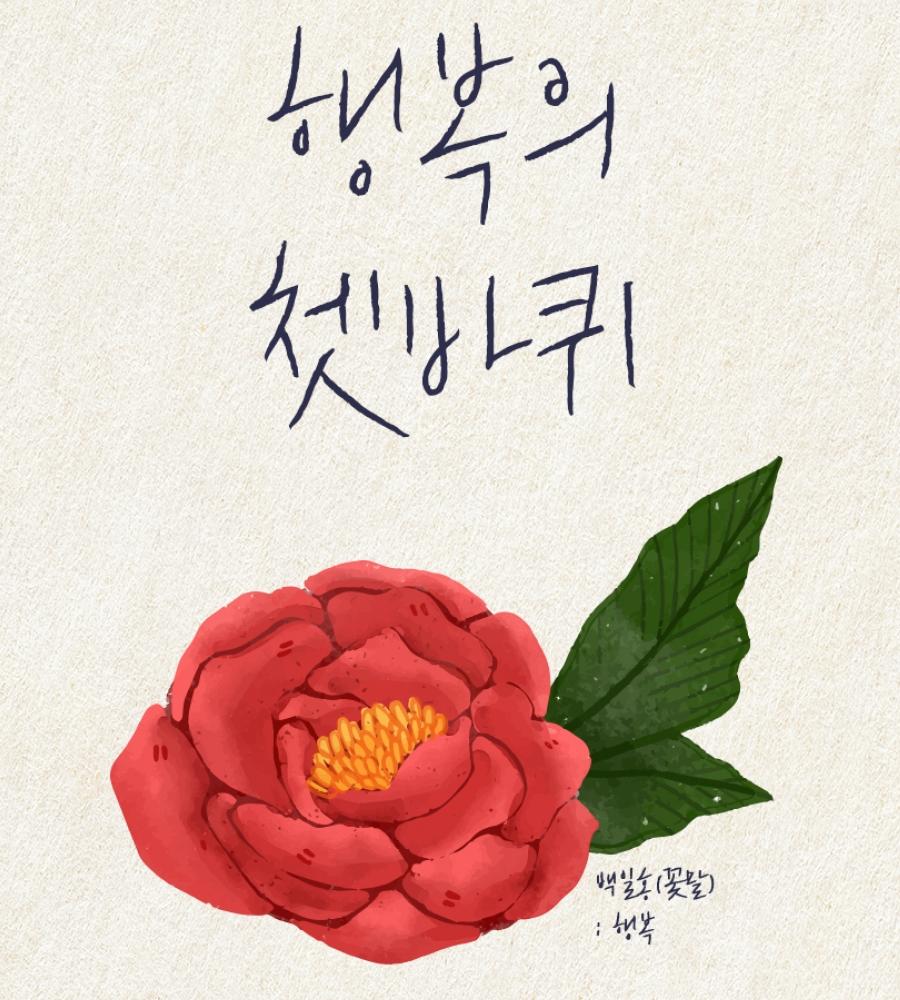 행복의
쳇바퀴
백일홍(꽃말)
: 행복